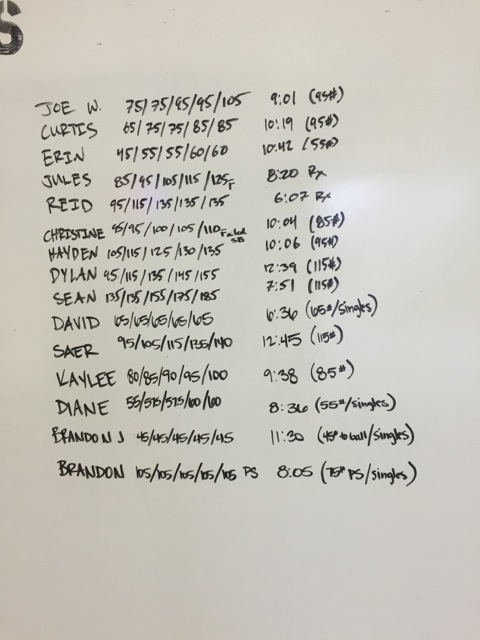 S
JOE W. 75/75/95/95/105 9:01 (95#)
CURTIS 65/75/75/85/85 10:19 (95#)
ERIN 45/55/55/60/60 10:42 (55#)
JULES 85/95/105/115/125F 8:20 Rx
REID 95/115/135/135/135 6:07 Rx
CHRISTINE 85/95/100/105/110 Failed SB 10:04 (85#)
HAYDEN 105/115/125/130/135 10:06 (95#)
DYLAN 95/115/135/145/155 12:39 (115#)
SEAN 135/135/155/175/185 7:51 (115#)
DAVID 65/65/65/65/65 6:36 (65#/singles)
SAER 95/105/115/135/140 12:45 (115#)
KAYLEE 80/85/90/95/100 9:38 (85#)
DIANE 55/575/575/60/60 8:36 (55#/singles)
BRANDON J 45/45/45/45/45 11:30 (45# to ball/singles)
BRANDON 105/105/105/105/105 PS 8:05 (75# PS/singles)